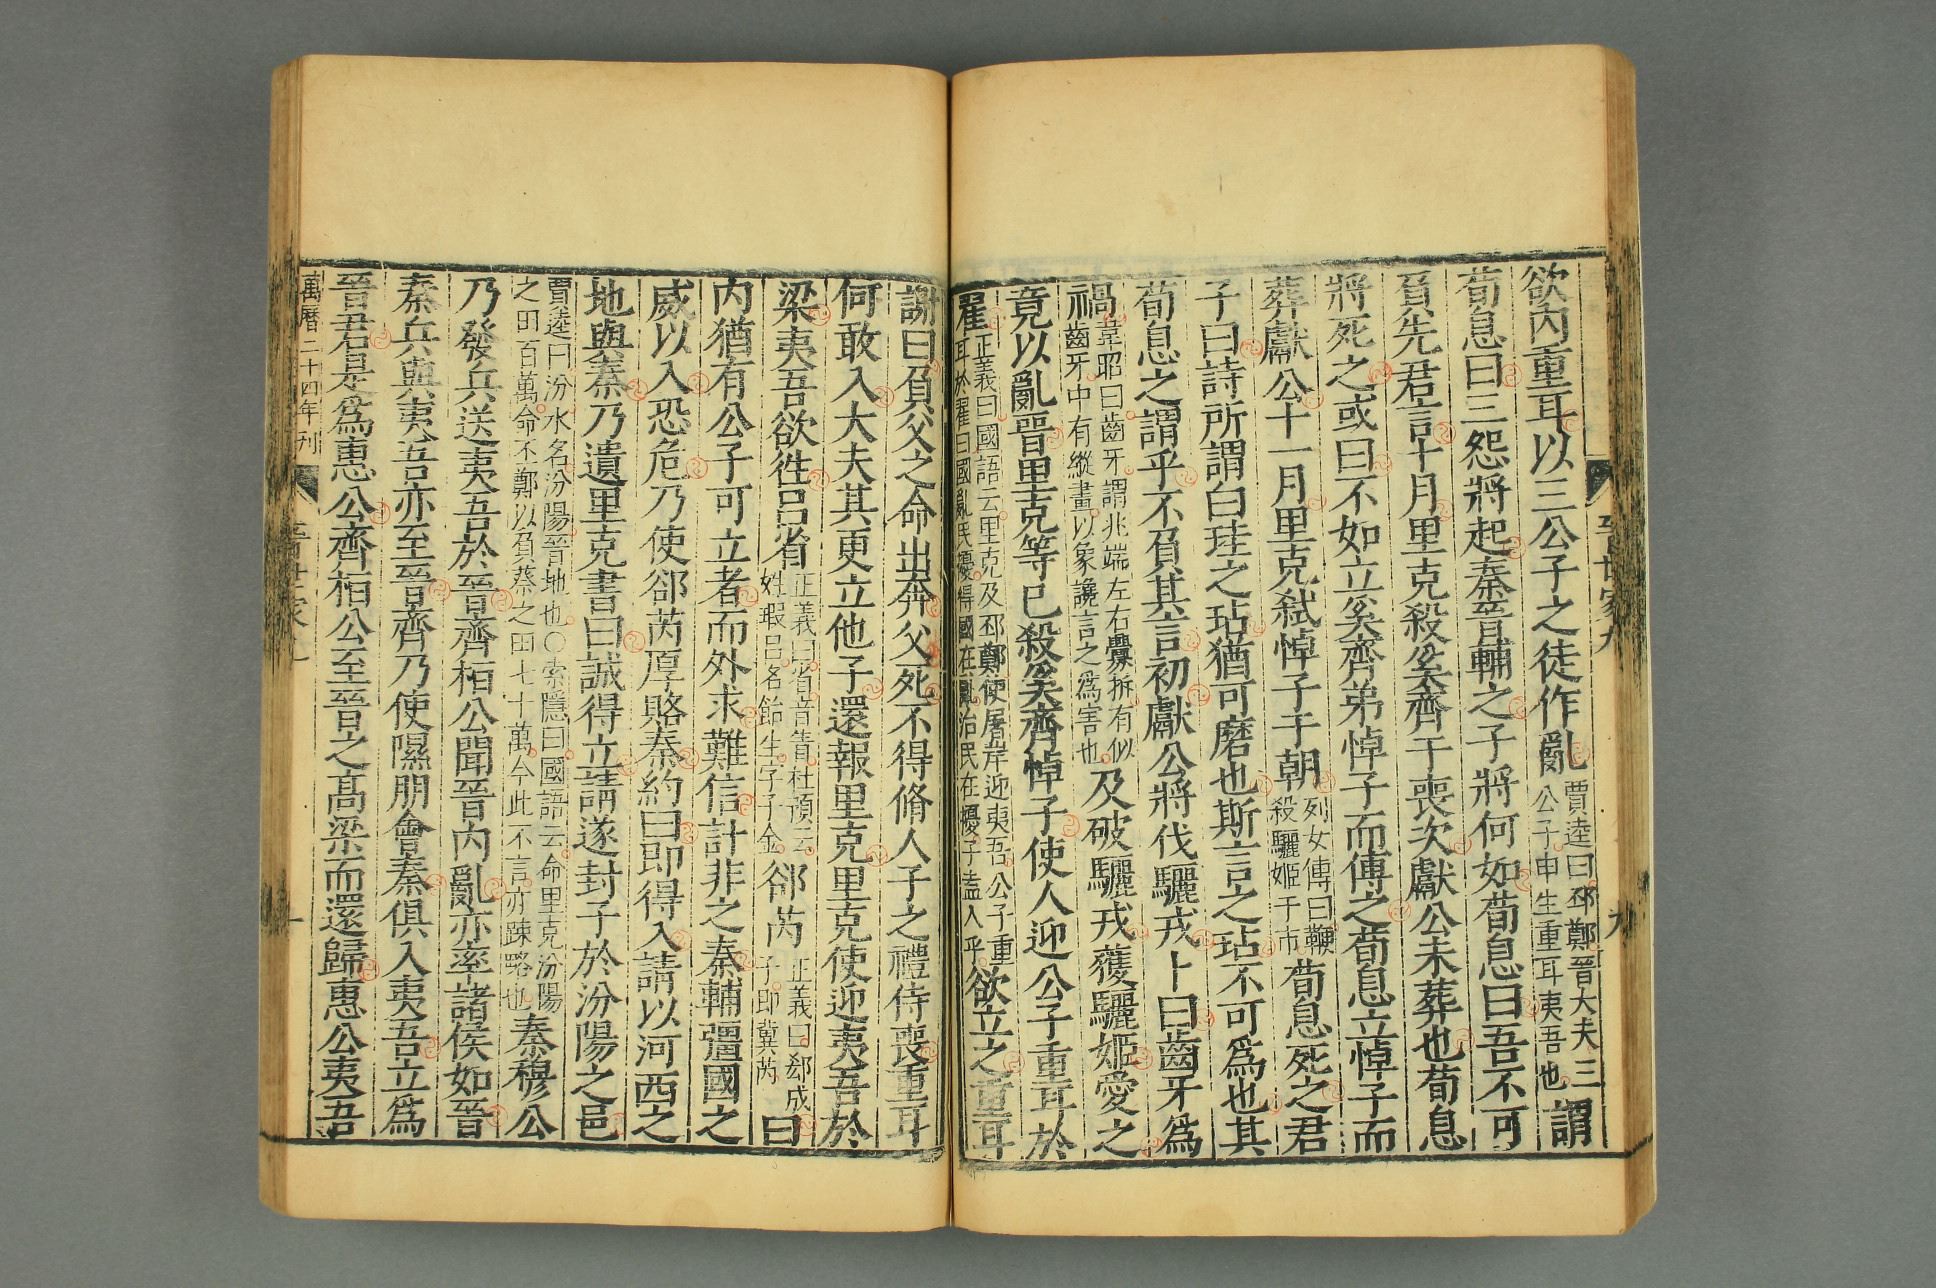 欲內重耳以三公子之徒作亂賈逵曰邳鄭晉大夫三公子申生重耳夷吾也謂
荀息曰三怨將起秦晉輔之子將何如荀息曰吾不可
負先君言十月里克殺奚齊于喪次獻公未葬也荀息
將死之或曰不如立奚齊弟悼子而傅之荀息立悼子而
葬獻公十一月里克弒悼子于朝列女傳曰鞭殺驪姬于市荀息死之君
子曰詩所謂白珪之玷猶可磨也斯言之玷不可為也其
荀息之謂乎不負其言初獻公將伐驪戎卜曰齒牙為
禍韋昭曰齒牙謂兆端左右釁拆有似齒牙中有縱畫以象讒言之為害也及破驪戎獲驪姬愛之
竟以亂晉里克等已殺奚齊悼子使人迎公子重耳於
翟正義曰國語云里克及邳鄭使屠岸迎夷吾公子重耳於翟曰國亂民擾得國在亂治民在擾子盍入乎欲立之重耳
謝曰負父之命出奔父死不得脩人子之禮侍喪重耳
何敢入大夫其更立他子還報里克里克使迎夷吾於
梁夷吾欲徃呂省正義曰省音眚杜預云姓瑕呂名飴生字子金郤芮正義曰郄成子即冀芮曰
內猶有公子可立者而外求難信計非之秦輔彊國之
威以入恐危乃使郤芮厚賂秦約曰即得入請以河西之
地與秦乃遺里克書曰誠得立請遂封子於汾陽之邑
賈逵曰汾水名汾陽晉地也○索隱曰國語云命里克汾陽之田百萬命丕鄭以負蔡之田七十萬今此不言亦踈略也秦穆公
乃發兵送夷吾於晉齊桓公聞晉內亂亦率諸侯如晉
秦兵與夷吾亦至晉齊乃使隰朋會秦俱入夷吾立為
晉君是為惠公齊桓公至晉之高梁而還歸惠公夷吾
萬曆二十四年刊
晉世家九
九